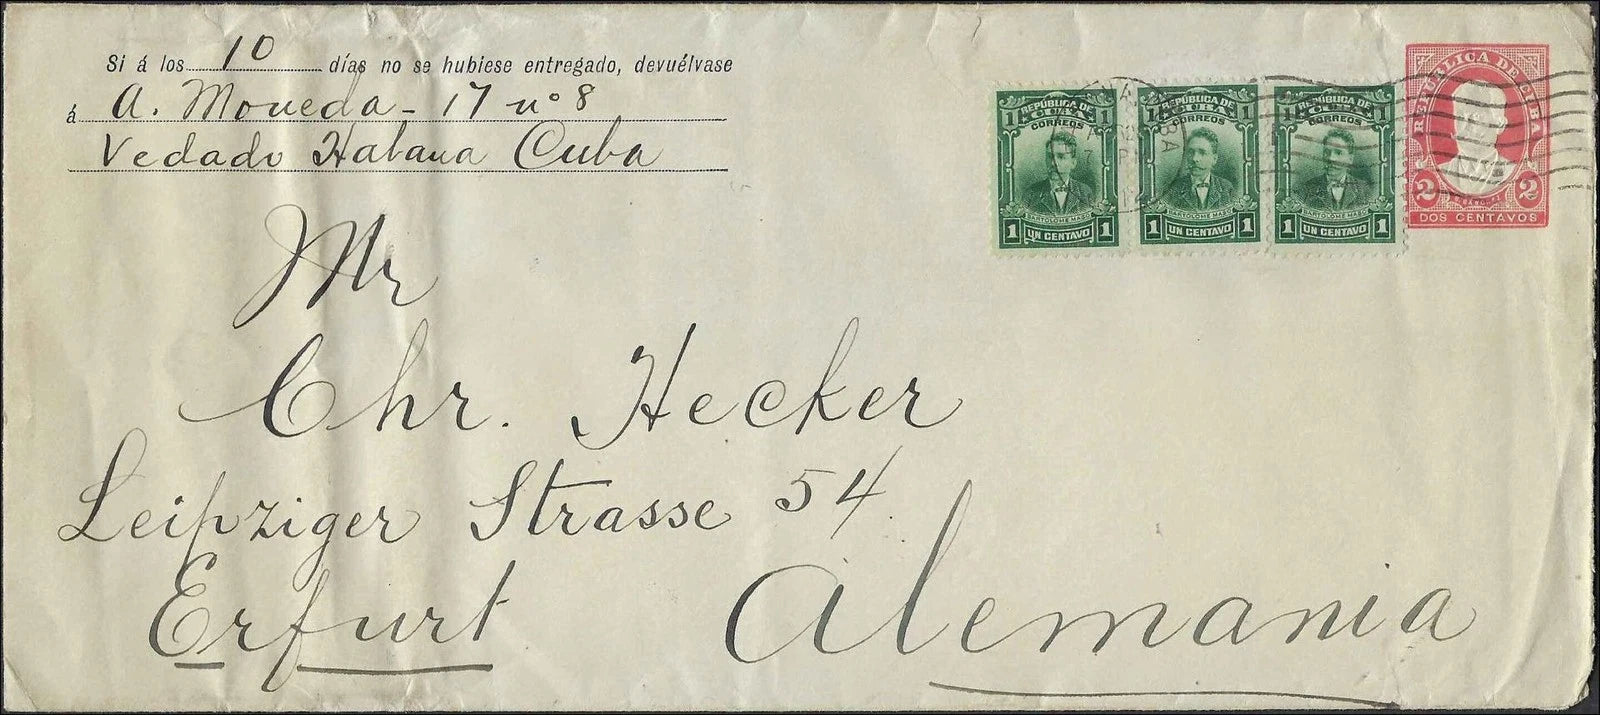 Si á los 10 días no se hubiese entregado, devuélvase
á A. Moneda - 17 nº 8
Vedado Habana Cuba
REPÚBLICA DE CUBA
1 1
CORREOS
BARTOLOMÉ MASÓ
1 UN CENTAVO 1
REPÚBLICA DE CUBA
1 1
CORREOS
BARTOLOMÉ MASÓ
1 UN CENTAVO 1
REPÚBLICA DE CUBA
1 1
CORREOS
BARTOLOMÉ MASÓ
1 UN CENTAVO 1
REPÚBLICA DE CUBA
2 2
DOS CENTAVOS
Mr
Chr. Hecker
Leipziger Strasse 54
Erfurt Alemania